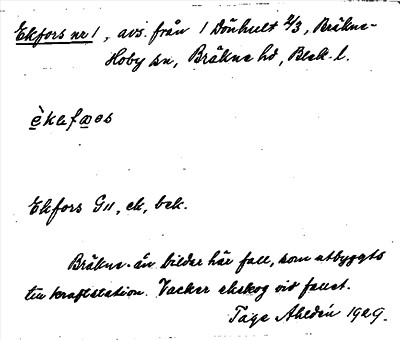 Ekfors nr 1, avs. från 1 Dönhult 2/3, Bräkne-
Hoby sn, Bräkne hd, Blek. l.
èkafɷes
Ekfors G11, ek, bek.
Bräkne-ån bildar här fall, som utbyggts
till kraftstation. Vacker ekskog vid fallet.
Tage Ahldén 1929.